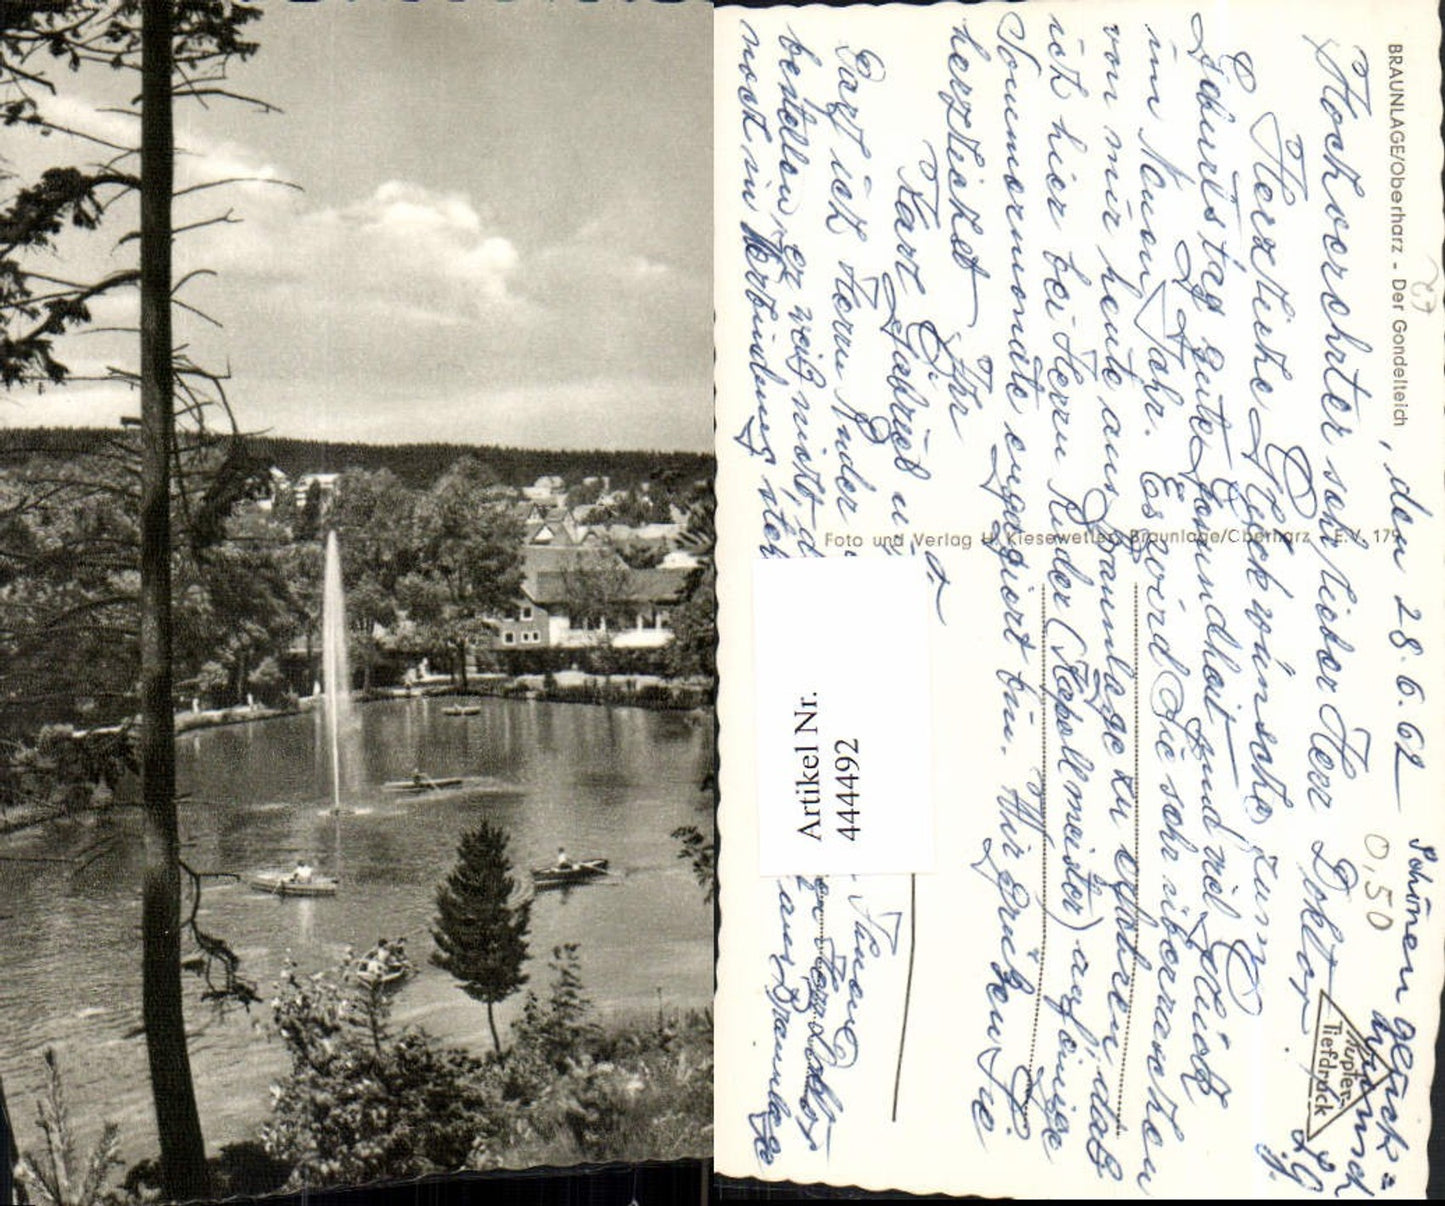 BRAUNLAGE/Oberharz - Der Gondelteich
, den 28.6.62
Hochverehrter sehr lieber Herr Doktor
Herzliche Glückwünsche zum
Geburtstag gute Gesundheit und viel Glück
im Neuen Jahr. Es wird Sie sehr überraschen
von mir heute aus Braunlage zu erfahren, daß
ich hier bei Herrn Ruder (Kapellmeister) auf einige
Sommermonate engagiert bin. Wir grüßen Sie
herzlichst Ihr
Karl
Darf ich Herrn Ruder
bestellen, er weiß nicht, d
noch in Verbindung steh
aus Braunlage
Schönen geück=
wunsch
Foto und Verlag H. Kiesewetter, Braunlage/Oberharz E.V. 179
Kupfer-
Tiefdruck
0,50
Artikel Nr.
444492